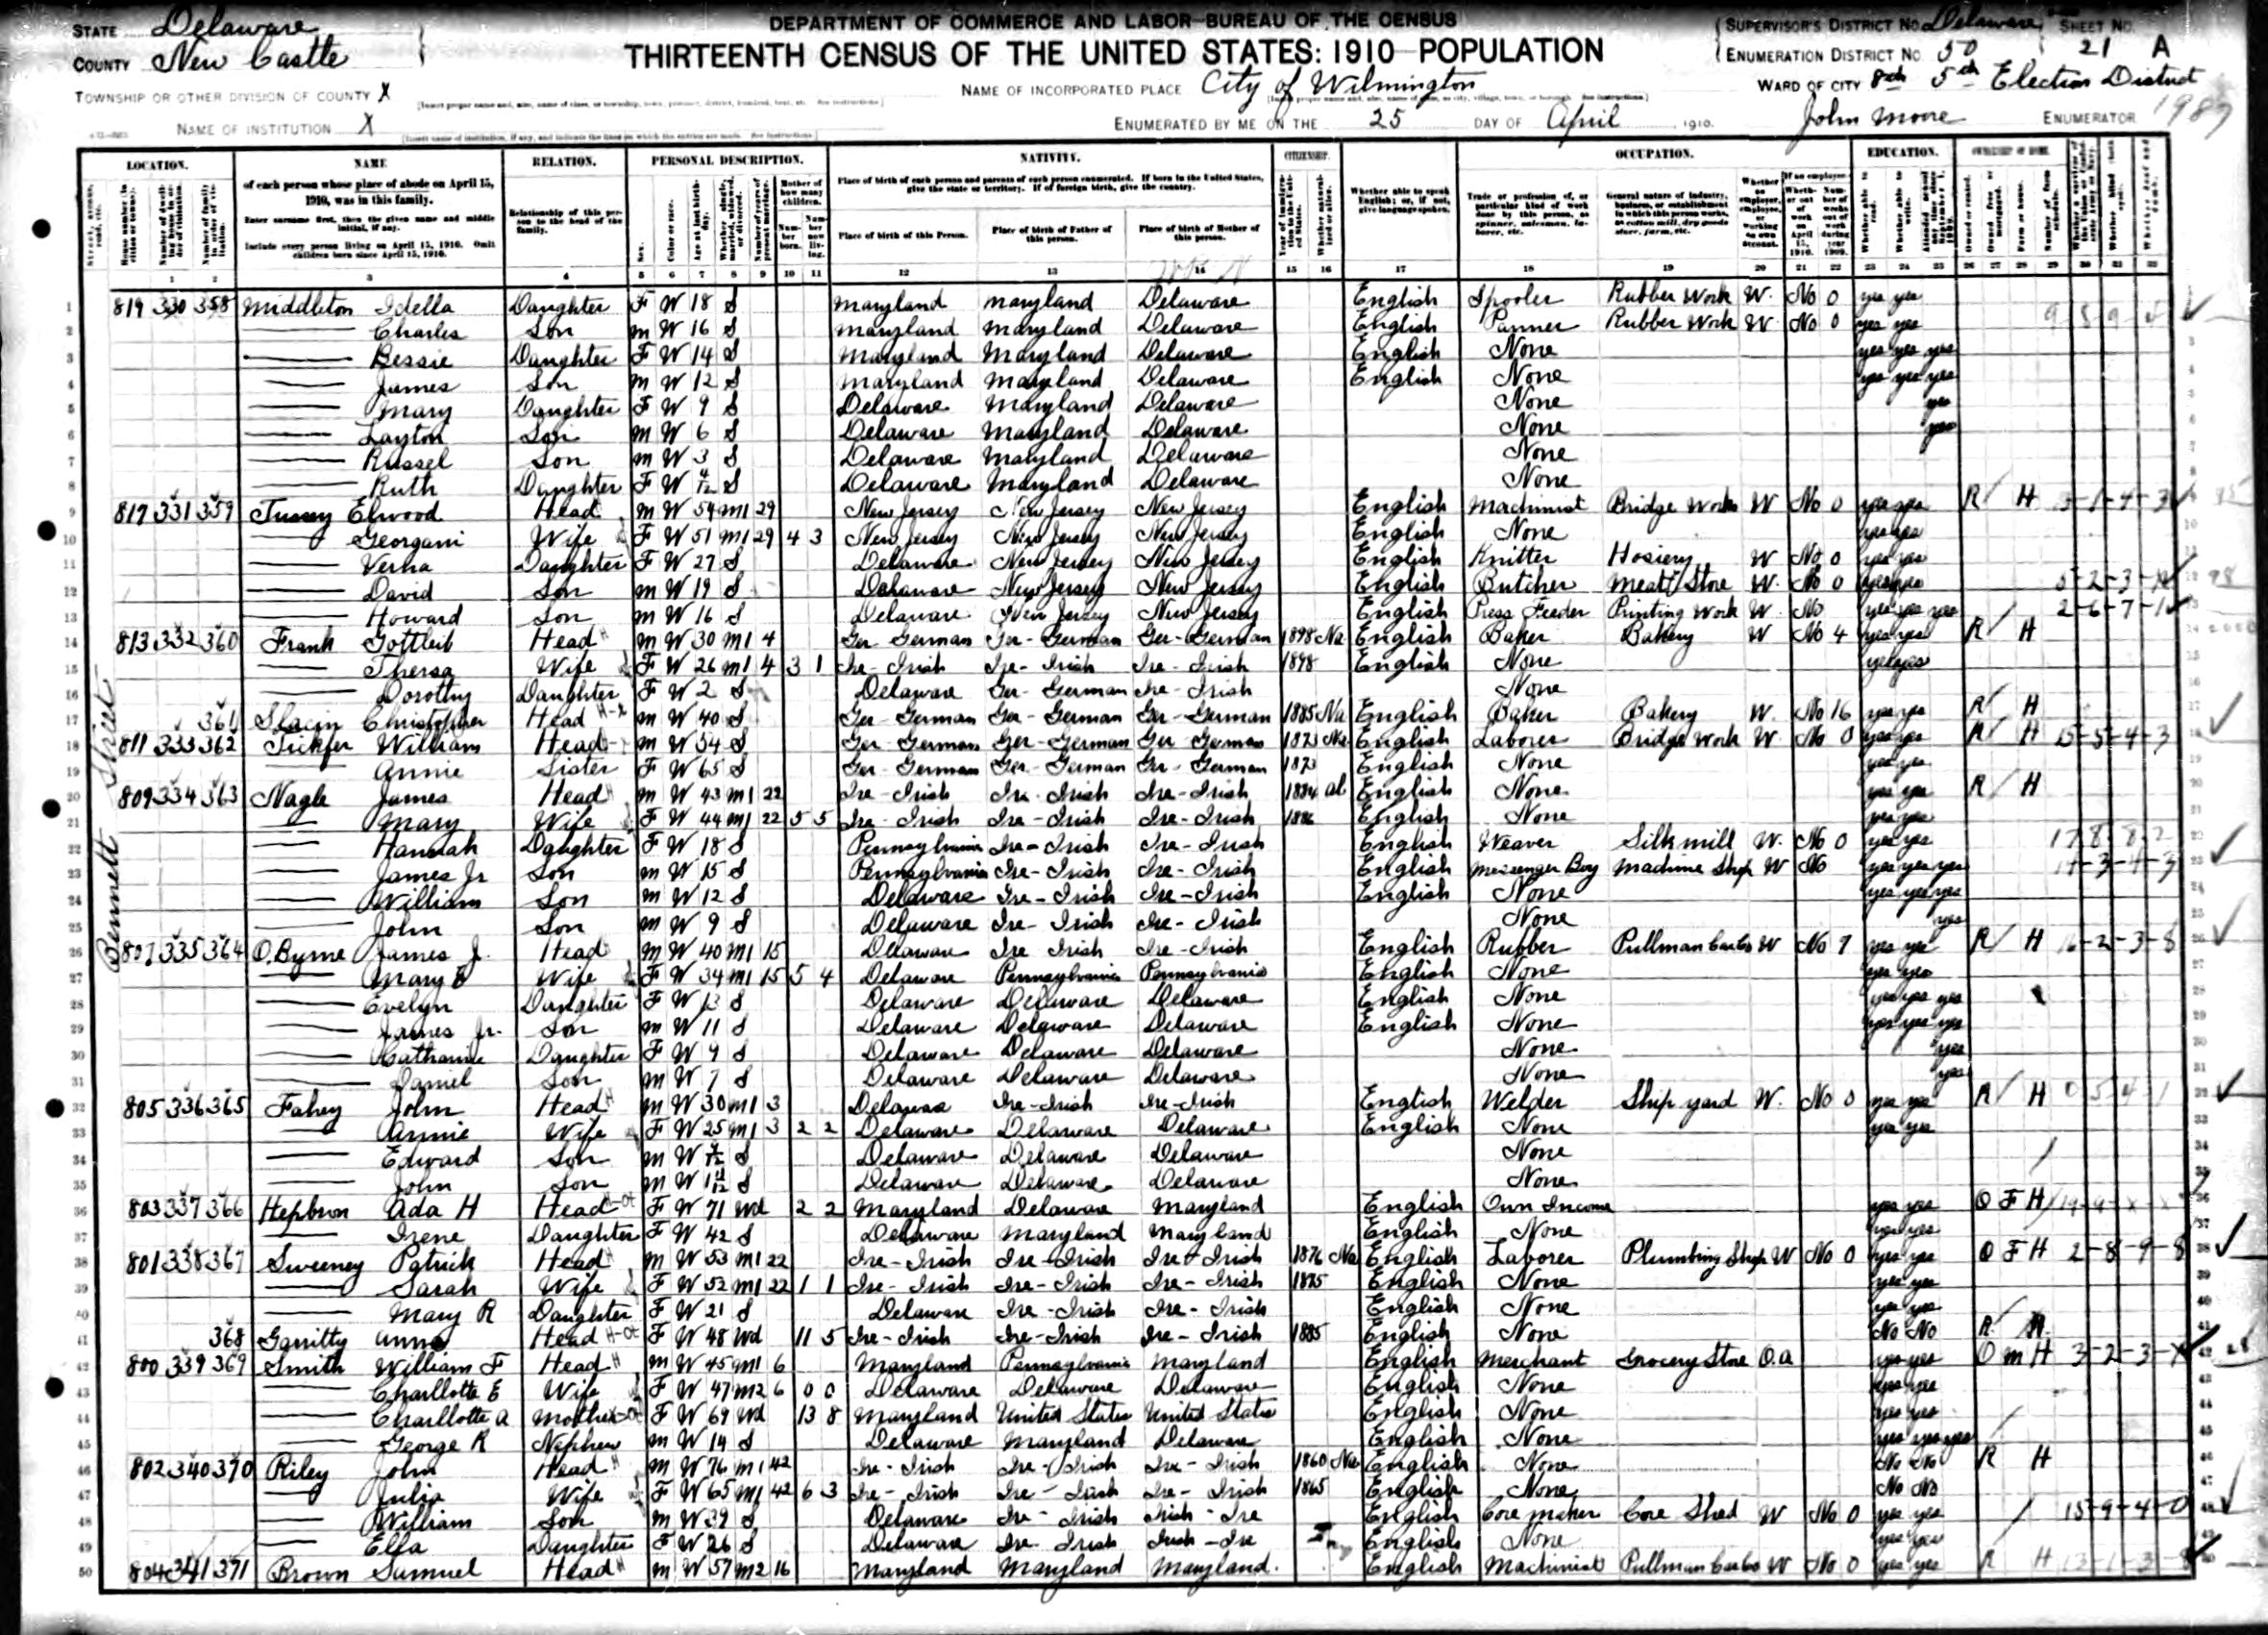 DEPARTMENT OF COMMERCE AND LABOR—BUREAU OF THE CENSUS
THIRTEENTH CENSUS OF THE UNITED STATES: 1910—POPULATION
STATE Delaware
COUNTY New Castle
TOWNSHIP OR OTHER DIVISION OF COUNTY X
NAME OF INSTITUTION X
NAME OF INCORPORATED PLACE City of Wilmington
ENUMERATED BY ME ON THE 25 DAY OF April, 1910.
SUPERVISOR'S DISTRICT NO. Delaware SHEET NO.
ENUMERATION DISTRICT NO. 50 21 A
WARD OF CITY 8th 5th Election District
John Moore ENUMERATOR 1987
LOCATION. NAME RELATION. PERSONAL DESCRIPTION. NATIVITY. CITIZENSHIP. OCCUPATION. EDUCATION. OWNERSHIP OF HOME.
of each person whose place of abode on April 15, 1910, was in this family.
Enter surname first, then the given name and middle initial, if any.
Include every person living on April 15, 1910. Omit children born since April 15, 1910.
Relationship of this person to the head of the family.
Place of birth of each person and parents of each person enumerated. If born in the United States, give the state or territory. If of foreign birth, give the country.
Place of birth of this Person. Place of birth of Father of this person. Place of birth of Mother of this person.
Whether able to speak English; or, if not, give language spoken.
Trade or profession of, or particular kind of work done by this person, as spinner, salesman, laborer, etc.
General nature of industry, business, or establishment in which this person works, as cotton mill, dry goods store, farm, etc.
Bennett Street
1 819 330 358 Middleton Idella Daughter F W 18 S Maryland Maryland Delaware English Spooler Rubber Work W. No 0 yes yes
2 Charles Son M W 16 S Maryland Maryland Delaware English Rubber Work W. No 0 yes yes
3 Bessie Daughter F W 14 S Maryland Maryland Delaware English None yes yes yes
4 James Son M W 12 S Maryland Maryland Delaware English None yes yes yes
5 Mary Daughter F W 9 S Delaware Maryland Delaware None yes
6 Layton Son M W 6 S Delaware Maryland Delaware None yes
7 Russel Son M W 3 S Delaware Maryland Delaware None
8 Ruth Daughter F W 4/12 S Delaware Maryland Delaware None
9 817 331 359 Tussey Elwood Head M W 54 M1 29 New Jersey New Jersey New Jersey English Machinist Bridge Works W No 0 yes yes R H
10 Georgani Wife F W 51 M1 29 4 3 New Jersey New Jersey New Jersey English None yes yes
11 Verna Daughter F W 27 S Delaware New Jersey New Jersey English Knitter Hosiery W No 0 yes yes
12 David Son M W 19 S Delaware New Jersey New Jersey English Butcher Meat Store W. No 0 yes yes
13 Howard Son M W 16 S Delaware New Jersey New Jersey English Press Feeder Printing Work W. No yes yes yes
14 813 332 360 Frank Gottleib Head M W 30 M1 4 Ger-German Ger-German Ger-German 1898 Na English Baker Bakery W No 4 yes yes R H
15 Thersa Wife F W 26 M1 4 3 1 Ire-Irish Ire-Irish Ire-Irish 1898 English None yes yes
16 Dorothy Daughter F W 2 S Delaware Ger-German Ire-Irish None
17 361 Christopher Head M W 40 S Ger-German Ger-German Ger-German 1885 Na English Baker Bakery W. No 16 yes yes R H
18 811 333 362 William Head M W 54 S Ger-German Ger-German Ger-German 1873 Na English Laborer Bridge Work W. No 0 yes yes R H 15-5-4-3
19 Annie Sister F W 65 S Ger-German Ger-German Ger-German 1873 English None yes yes
20 809 334 363 Nagle James Head M W 43 M1 22 Ire-Irish Ire-Irish Ire-Irish 1884 al English None yes yes R H
21 Mary Wife F W 44 M1 22 5 5 Ire-Irish Ire-Irish Ire-Irish 1886 English None yes yes
22 Hannah Daughter F W 18 S Pennsylvania Ire-Irish Ire-Irish English Weaver Silk mill W. No 0 yes yes
23 James Jr Son M W 15 S Pennsylvania Ire-Irish Ire-Irish English Messenger Boy Machine Shop W No yes yes yes
24 William Son M W 12 S Delaware Ire-Irish Ire-Irish English None yes yes yes
25 John Son M W 9 S Delaware Ire-Irish Ire-Irish None yes
26 807 335 364 O.Byrne James J. Head M W 40 M1 15 Delaware Ire Irish Ire-Irish English Rubber Pullman Car Co W No 7 yes yes R H 16-2-3-8
27 Mary E Wife F W 34 M1 15 5 4 Delaware Pennsylvania Pennsylvania English None yes yes
28 Evelyn Daughter F W 13 S Delaware Delaware Delaware English None yes yes yes
29 James Jr. Son M W 11 S Delaware Delaware Delaware English None yes yes yes
30 Catharine Daughter F W 9 S Delaware Delaware Delaware None yes
31 Daniel Son M W 7 S Delaware Delaware Delaware None yes
32 805 336 365 Fahey John Head M W 30 M1 3 Delaware Ire-Irish Ire-Irish English Welder Ship yard W. No 0 yes yes R H
33 Annie Wife F W 25 M1 3 2 2 Delaware Delaware Delaware English None yes yes
34 Edward Son M W S Delaware Delaware Delaware None
35 John Son M W S Delaware Delaware Delaware None
36 803 337 366 Hepbron Ada H Head F W 71 Wd 2 2 Maryland Delaware Maryland English Own Income yes yes O F H
37 Irene Daughter F W 42 S Delaware Maryland Maryland English None yes yes
38 801 338 367 Sweeney Patrick Head M W 53 M1 22 Ire-Irish Ire-Irish Ire-Irish 1876 Na English Laborer Plumbing Shop W No 0 yes yes O F H 2-8-9-8
39 Sarah Wife F W 52 M1 22 1 1 Ire-Irish Ire-Irish Ire-Irish 1875 English None yes yes
40 Mary R Daughter F W 21 S Delaware Ire-Irish Ire-Irish English None yes yes
41 368 Garritty Anna Head F W 48 Wd 11 5 Ire-Irish Ire-Irish Ire-Irish 1885 English None No No R. H
42 800 339 369 Smith William F Head M W 45 M1 6 Maryland Pennsylvania Maryland English Merchant Grocery Store O.a yes yes O M H
43 Charllotte E Wife F W 47 M2 6 0 0 Delaware Delaware Delaware English None yes yes
44 Charllotte A Mother F W 69 Wd 13 8 Maryland United States United States English None yes yes
45 George R Nephew M W 14 S Delaware Maryland Delaware English None yes yes yes
46 802 340 370 Riley John Head M W 76 M1 42 Ire-Irish Ire-Irish Ire-Irish 1860 Na English None No No R H
47 Julia Wife F W 65 M1 42 6 3 Ire-Irish Ire-Irish Ire-Irish 1865 English None No No
48 William Son M W 39 S Delaware Ire-Irish Irish-Ire English Core maker Core Shed W No 0 yes yes 15-9-4-0
49 Ella Daughter F W 26 S Delaware Ire Irish Irish-Ire English None yes yes
50 804 341 371 Brown Samuel Head M W 57 M2 16 Maryland Maryland Maryland. English Machinist Pullman Car Co W No 0 yes yes R H